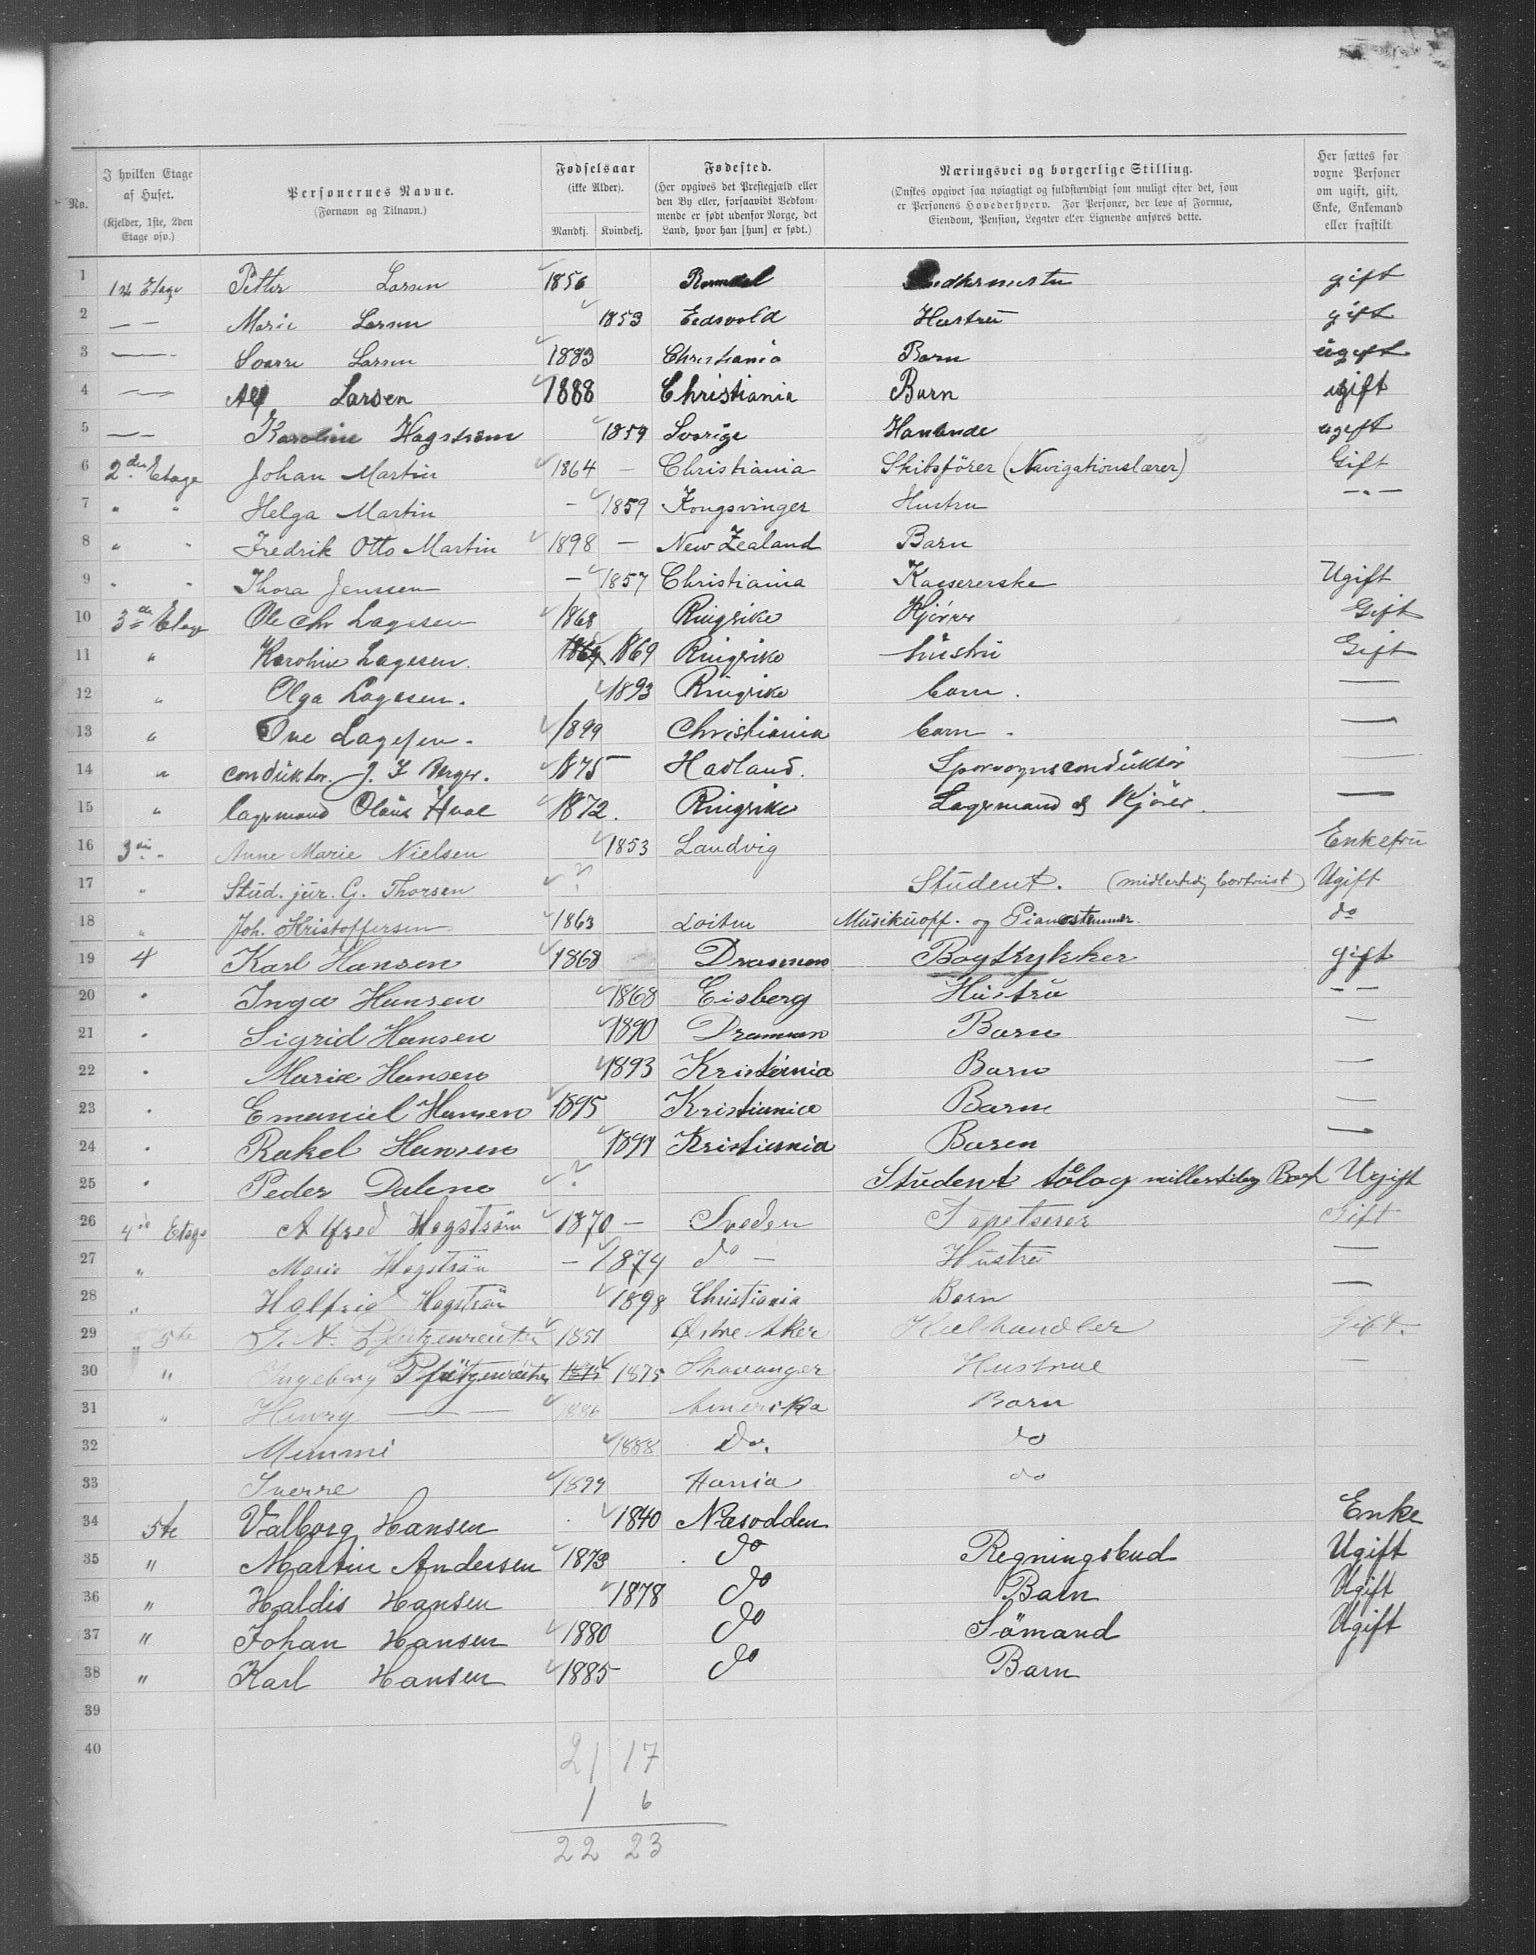 No.
I hvilken Etage af Huset. (Kjelder, 1ste, 2den Etage osv.)
Personernes Navne. (Fornavn og Tilnavn.)
Fødselsaar (ikke Alder). Mandkj. Kvindekj.
Fødested. (Her opgives det Præstegjæld eller den By eller, forsaavidt Vedkommende er født udenfor Norge, det Land, hvor han [hun] er født.)
Næringsvei og borgerlige Stilling. (Ønskes opgivet saa nøiagtigt og fuldstændigt som muligt efter det, som er Personens Hovederhverv. For Personer, der leve af Formue, Eiendom, Pension, Legater eller Lignende anføres dette.
Her sættes for voxne Personer om ugift, gift, Enke, Enkemand eller fraskilt
1 1st Etage Petter Larsen 1856 gift
2 — — Marie Larsen 1853 Eedsvold Hustru gift
3 — Sverre Larsen 1883 Christiania Barn ugift
4 — Alf Larsen 1888 Christiania Barn ugift
5 — Karoline Hagstrøm 1859 Sverige ugift
6 2den Etage Johan Martin 1864 — Christiania Skibsfører (Navigationslærer) Gift
7 " " Helga Martin — 1859 Kongsvinger Hustru — " —
8 " " Fredrik Otto Martin 1898 — New Zealand Barn
9 " " Thora Jenssen — 1857 Christiania Kassererske Ugift
10 3de Etage Ole Chr Lagesen 1868 Ringrike Kjører Gift
11 " Karoline Lagesen 1869 1869 Ringrike hüstrü Gift
12 " Olga Lagesen. 1893 Ringrike barn. —
13 " Ove Lagesen. 1899 Christiania barn. —
14 " condüktor. J. Berger. 1875 — Hadland. Sporvognscondüktør —
15 " lagermand Olaüs Hval 1872. Ringrike Lagermand og Kjører. —
16 3die " Anne Marie Nielsen 1853 Landvig Enkefrü
17 " Stüd. jür. G. Thorsen ? Stüdent. (midlertidig bortreist) Ugift
18 " Joh. Kristoffersen 1863 Loiten Müsiküopf. og Pianostemmer. do
19 4 Karl Hansen 1868 Drammen Bogtrykker gift
20 " Inga Hansen 1868 Eisberg Hüstrü — —
21 " Sigrid Hansen 1890 Drammen Barn —
22 " Marie Hansen 1893 Kristiania Barn —
23 " Emaniel Hansen 1895 Kristiania Barn —
24 " Rakel Hansen 1899 Kristiania Baren —
25 " Peder Dalene ? Stüdent Ugift
26 4de Etage Alfred Hagström 1870 — Sveden Tapetserer Gift
27 " Marie Hagström — 1874 do — Hüstrü —
28 " Halfrid Hagström 1898 Christiania Barn —
29 " 5te Pfützenreüter 1851 Østre Aker Kulhandler Gift.
30 " Ingeborg Pfützenreüter 1875 1875 Stavanger Hustrue —
31 " Henry — — 1886 Amerika Barn
32 Mimmi 1888 Do. do
33 Sverre 1899 Kania do
34 5te Valborg Hansen 1840 Næsodden Enke
35 " Martin Andersen 1873 do Regningsbud Ugift
36 " Haldis Hansen 1878 do Barn Ugift
37 " Johan Hansen 1880 do Sømand Ugift
38 " Karl Hansen 1885 do Barn
39
40
21 17
1 6
22 23